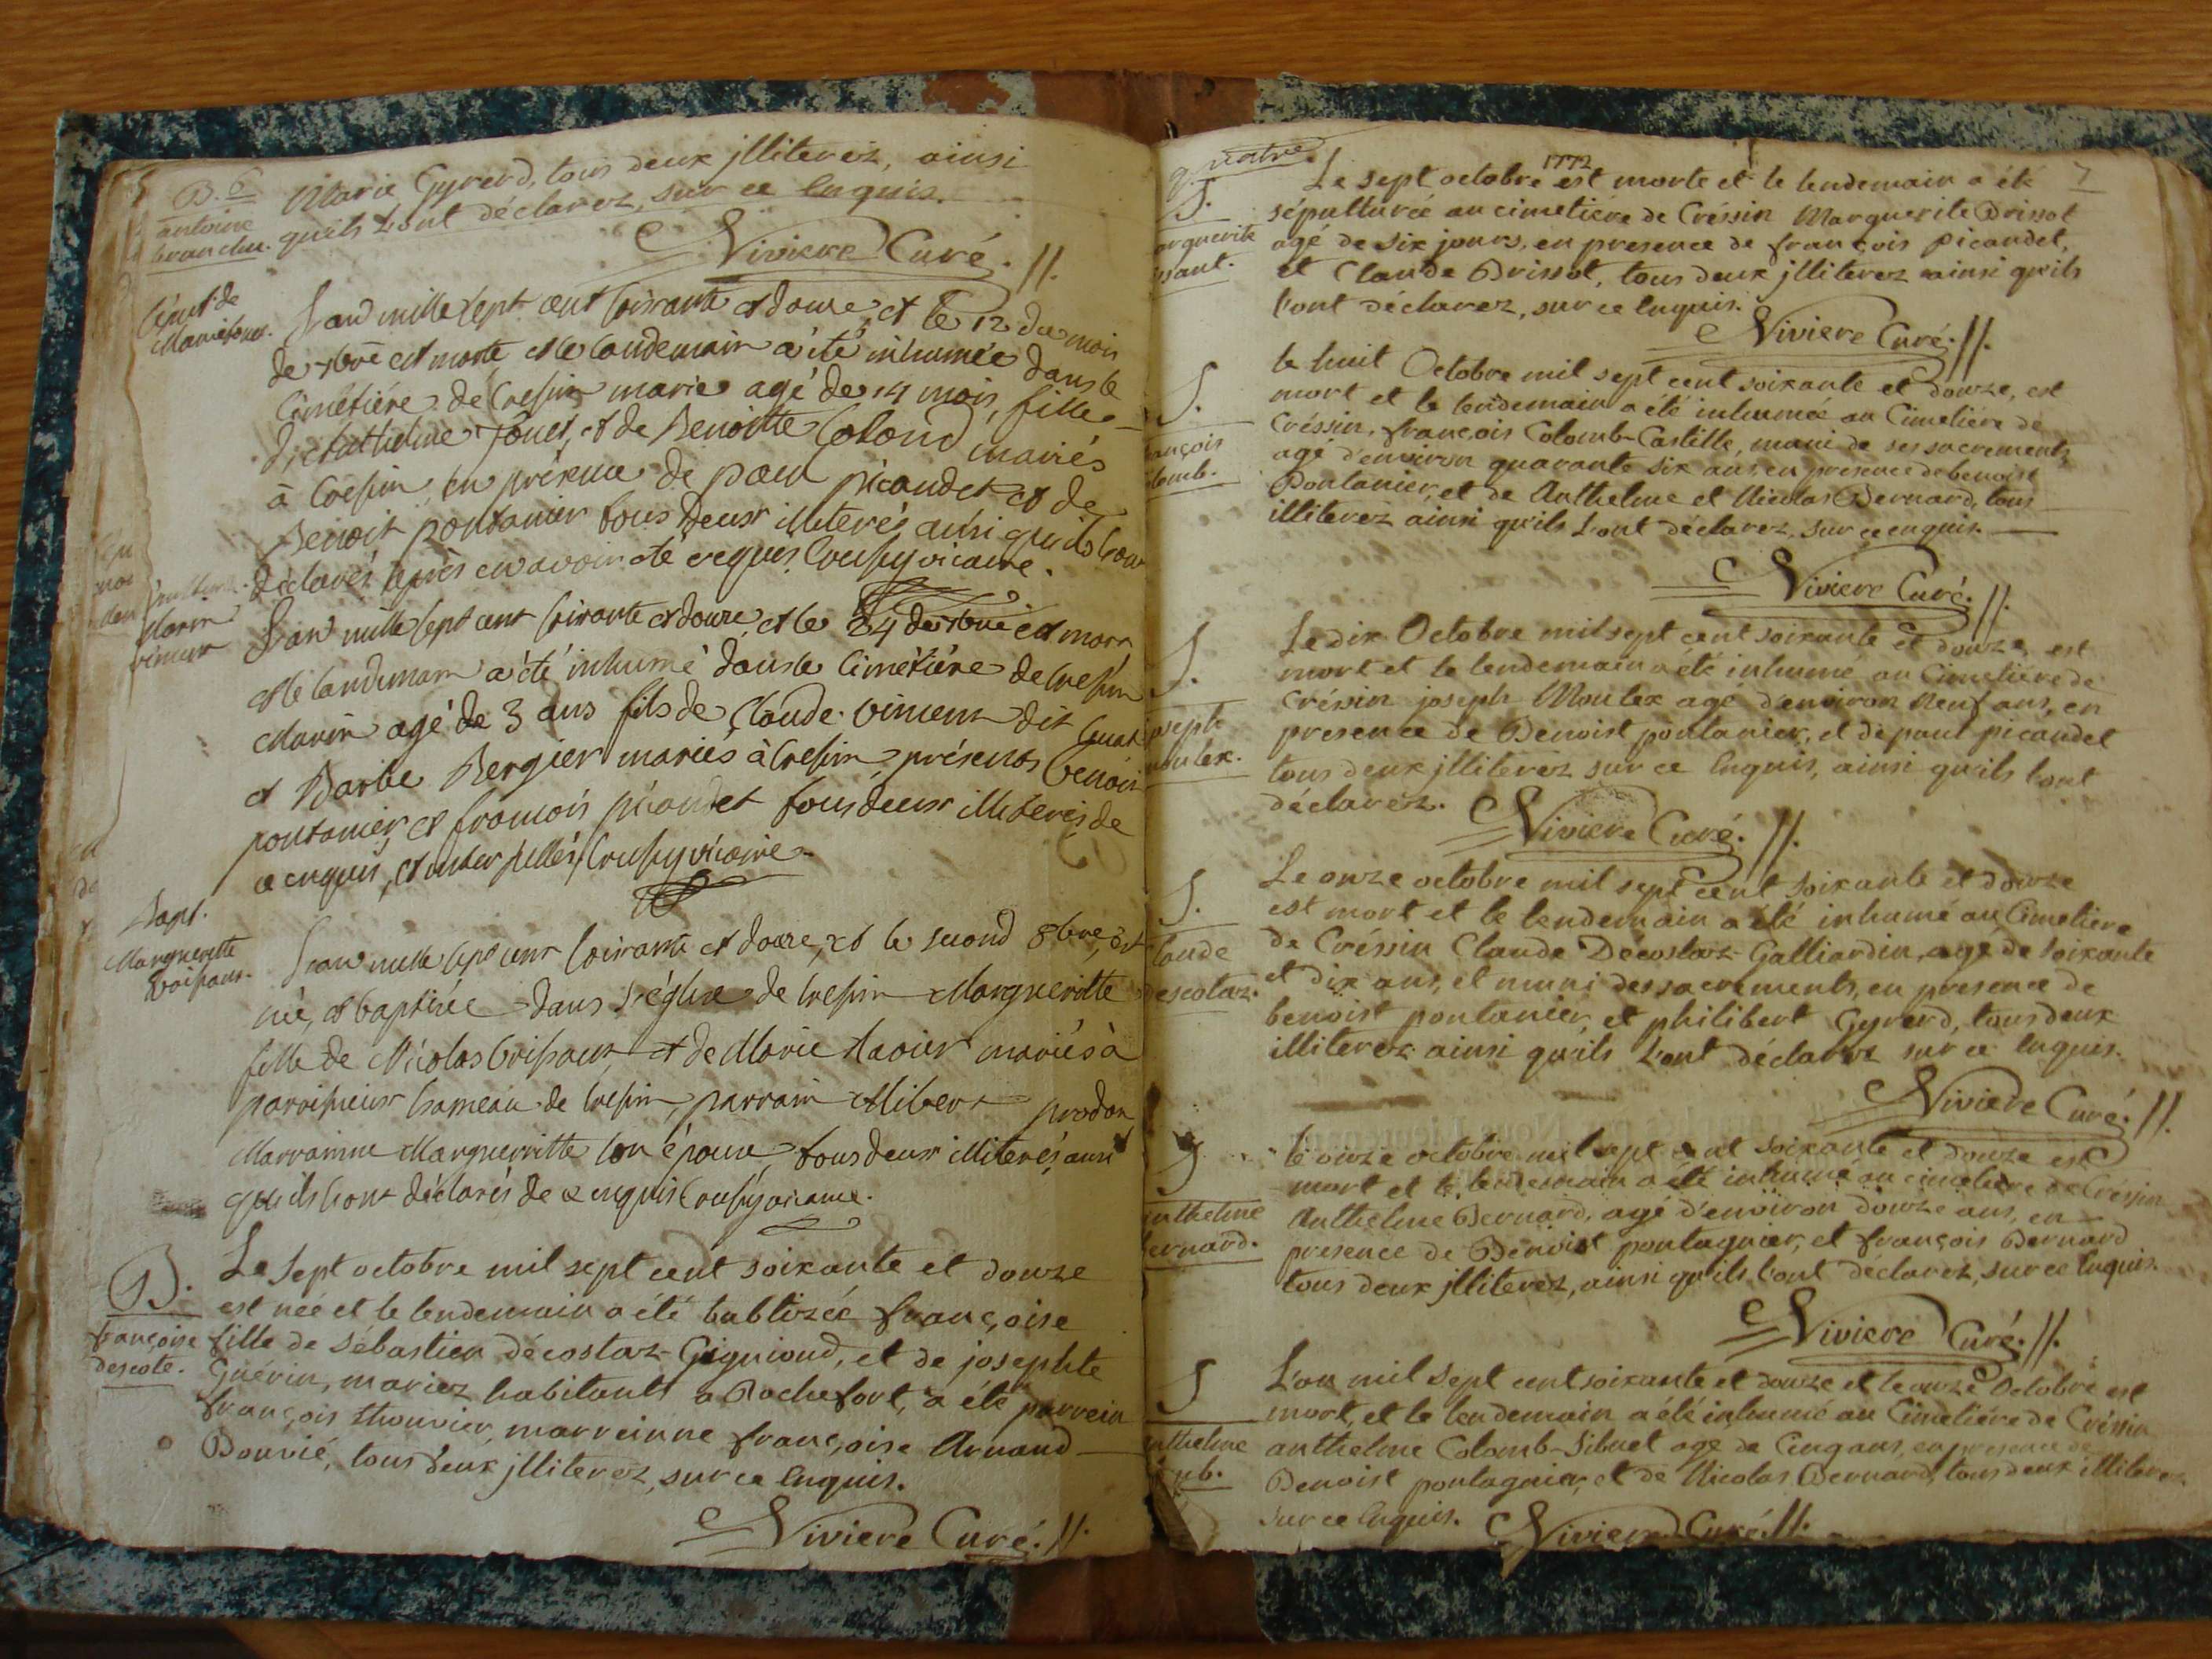 B. 6
antoine
branche.
Marie Gyrerd, tous deux jlliterez, ainsi
quils L'ont déclarez, sur ce Enquis.
Viviere Curé. //.
Sépult de
Marie fouet.
Lan mille sept cent soixante et douze, et le 12 du mois
de 7bre est morte et le landemain a été inhumée dans le
Cimétiére de Cressin marie agé de 14 mois, fille
d'Anthelme fouet, et de Benoitte Colomb mariés
à Cressin, en présence de paul picaudet et de
Benoit pontanier tous deux illiterés ainsi quils l'ont
déclarés après en avoir été enquis vicaire.
Marin
vincent
Lan mille sept cent soixante et douze, et le 24 de 7bre est mort
et le landemain a été inhumé dans le Cimétiére de Cressin
Marin agé de 3 ans fils de Claude vincent dit
et Barbe Bergier mariés à Cressin, présents benoit
pontanier, et francois picaudet tous deux illiterés de
ce enquis, et interpellés vicaire.
Bapt.
Marguerette
brissaut.
Lan mille sept cent soixante et douze, et le second 8bre, est
née, et baptisée dans l'église de Cressin Marguerette
fille de Nicolas brissaut, et de Marie mariés à
parissieux hameau de Cressin, parrain prodon
Marrainne Marguerritte son épouse, tous deux illiterés, ainsi
quils l'ont déclarés de ce enquis vicaire.
B.
françoise
descote.
Le sept octobre mil sept cent soixante et douze
est née et le lendemain a été babtizée françoise
fille de Sébastien décostaz-Gigniond, et de josephte
Guérin, mariez habitants a Rochefort, a été parrein
françois thouvier, marreinne françoise Arnaud
Bouvié, tous deux jlliterez, sur ce Enquis.
Viviere Curé. //.
quatre
7
1772
S.
arguerite
issaut.
Le sept octobre est morte et le lendemain a été
sépulturée au cimetiére de Créssin Marguerite Brissot
agé de six jours, en presence de françois picaudet,
et Claude Brissot, tous deux jlliterez ainsi qu'ils
l'ont déclarez, sur ce Enquis.
Viviere Curé. //.
S.
ançois
lomb.
le huit Octobre mil sept cent soixante et douze, est
mort et le lendemain a été inhumée au Cimetiére de
Créssin, françois Colomb-Castille, muni de ses sacrements
agé d'environ quarante six ans en presence de benoist
Pontanier, et de Anthelme et Nicolas Bernard, tous
illiterez ainsi qu'ils L'ont déclarez, sur ce enquis.
Viviere Curé. //.
S.
joseph
moulex.
Le dix Octobre mil sept cent soixante et douze, est
mort et le lendemain a été inhumé au Cimetiére de
Créssin joseph Moulex agé d'environ neuf ans, en
presence de Benoist pontanier, et de paul picaudet
tous deux jlliterez sur ce Enquis, ainsi qu'ils l'ont
déclarez.
Viviere Curé. //.
S.
laude
escotaz.
Le onze octobre mil sept cent soixante et douze
est mort et le lendemain a été inhumé au Cimetiére
de Créssin Claude Décostaz-Galliardin, agé de soixante
et dix ans, et muni des sacrements, en presence de
benoist pontanier, et philibert Gyrerd, tous deux
illiterez ainsi qu'ils L'ont déclarez sur ce Enquis.
Viviere Curé. //.
S
anthelme
bernard.
le onze octobre mil sept cent soixante et douze est
mort et le lendemain a été inhumé au cimetiére de Créssin
Anthelme Bernard, agé d'environ douze ans, en
presence de Benoist pontagnier, et françois Bernard
tous deux jlliterez, ainsi qu'ils l'ont déclarez, sur ce Enquis.
Viviere Curé. //.
S
anthelme
mb.
L'an mil sept cent soixante et douze et le onze Octobre est
mort, et le lendemain a été inhumé au Cimetiére de Créssin
anthelme Colomb-Sibuet agé de Cinq ans, en presence de
Benoist pontagnier, et de Nicolas Bernard, tous deux illiterez
sur ce Enquis.
Viviere Curé. //.